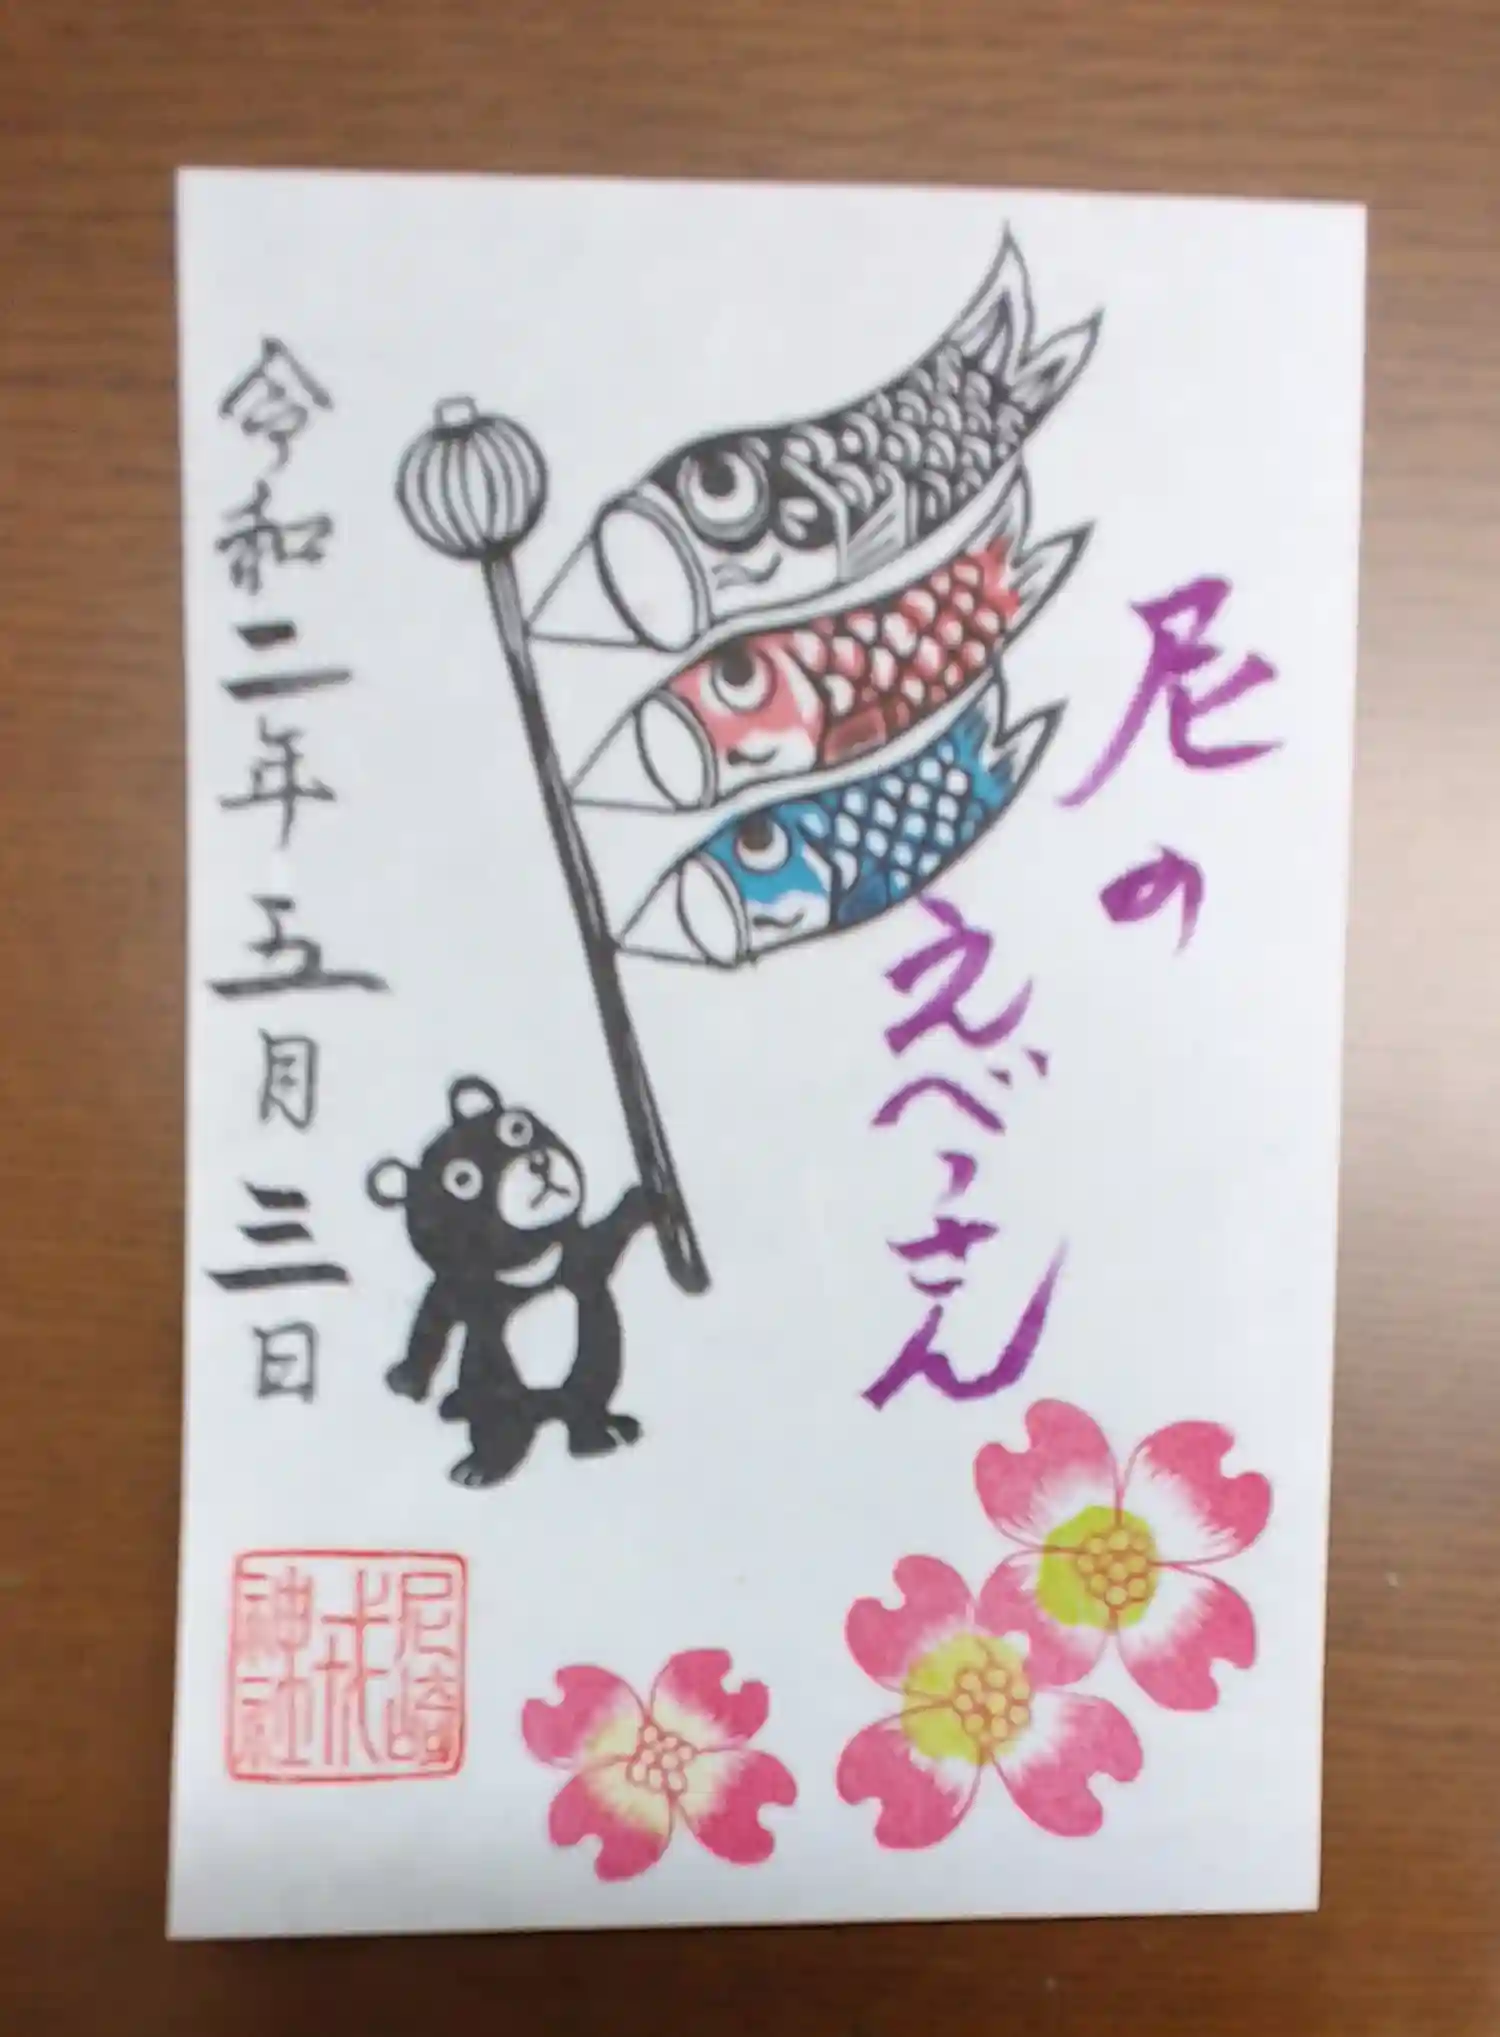 尼の
えべっさん
令和二年五月三日
尼崎
戎
神社